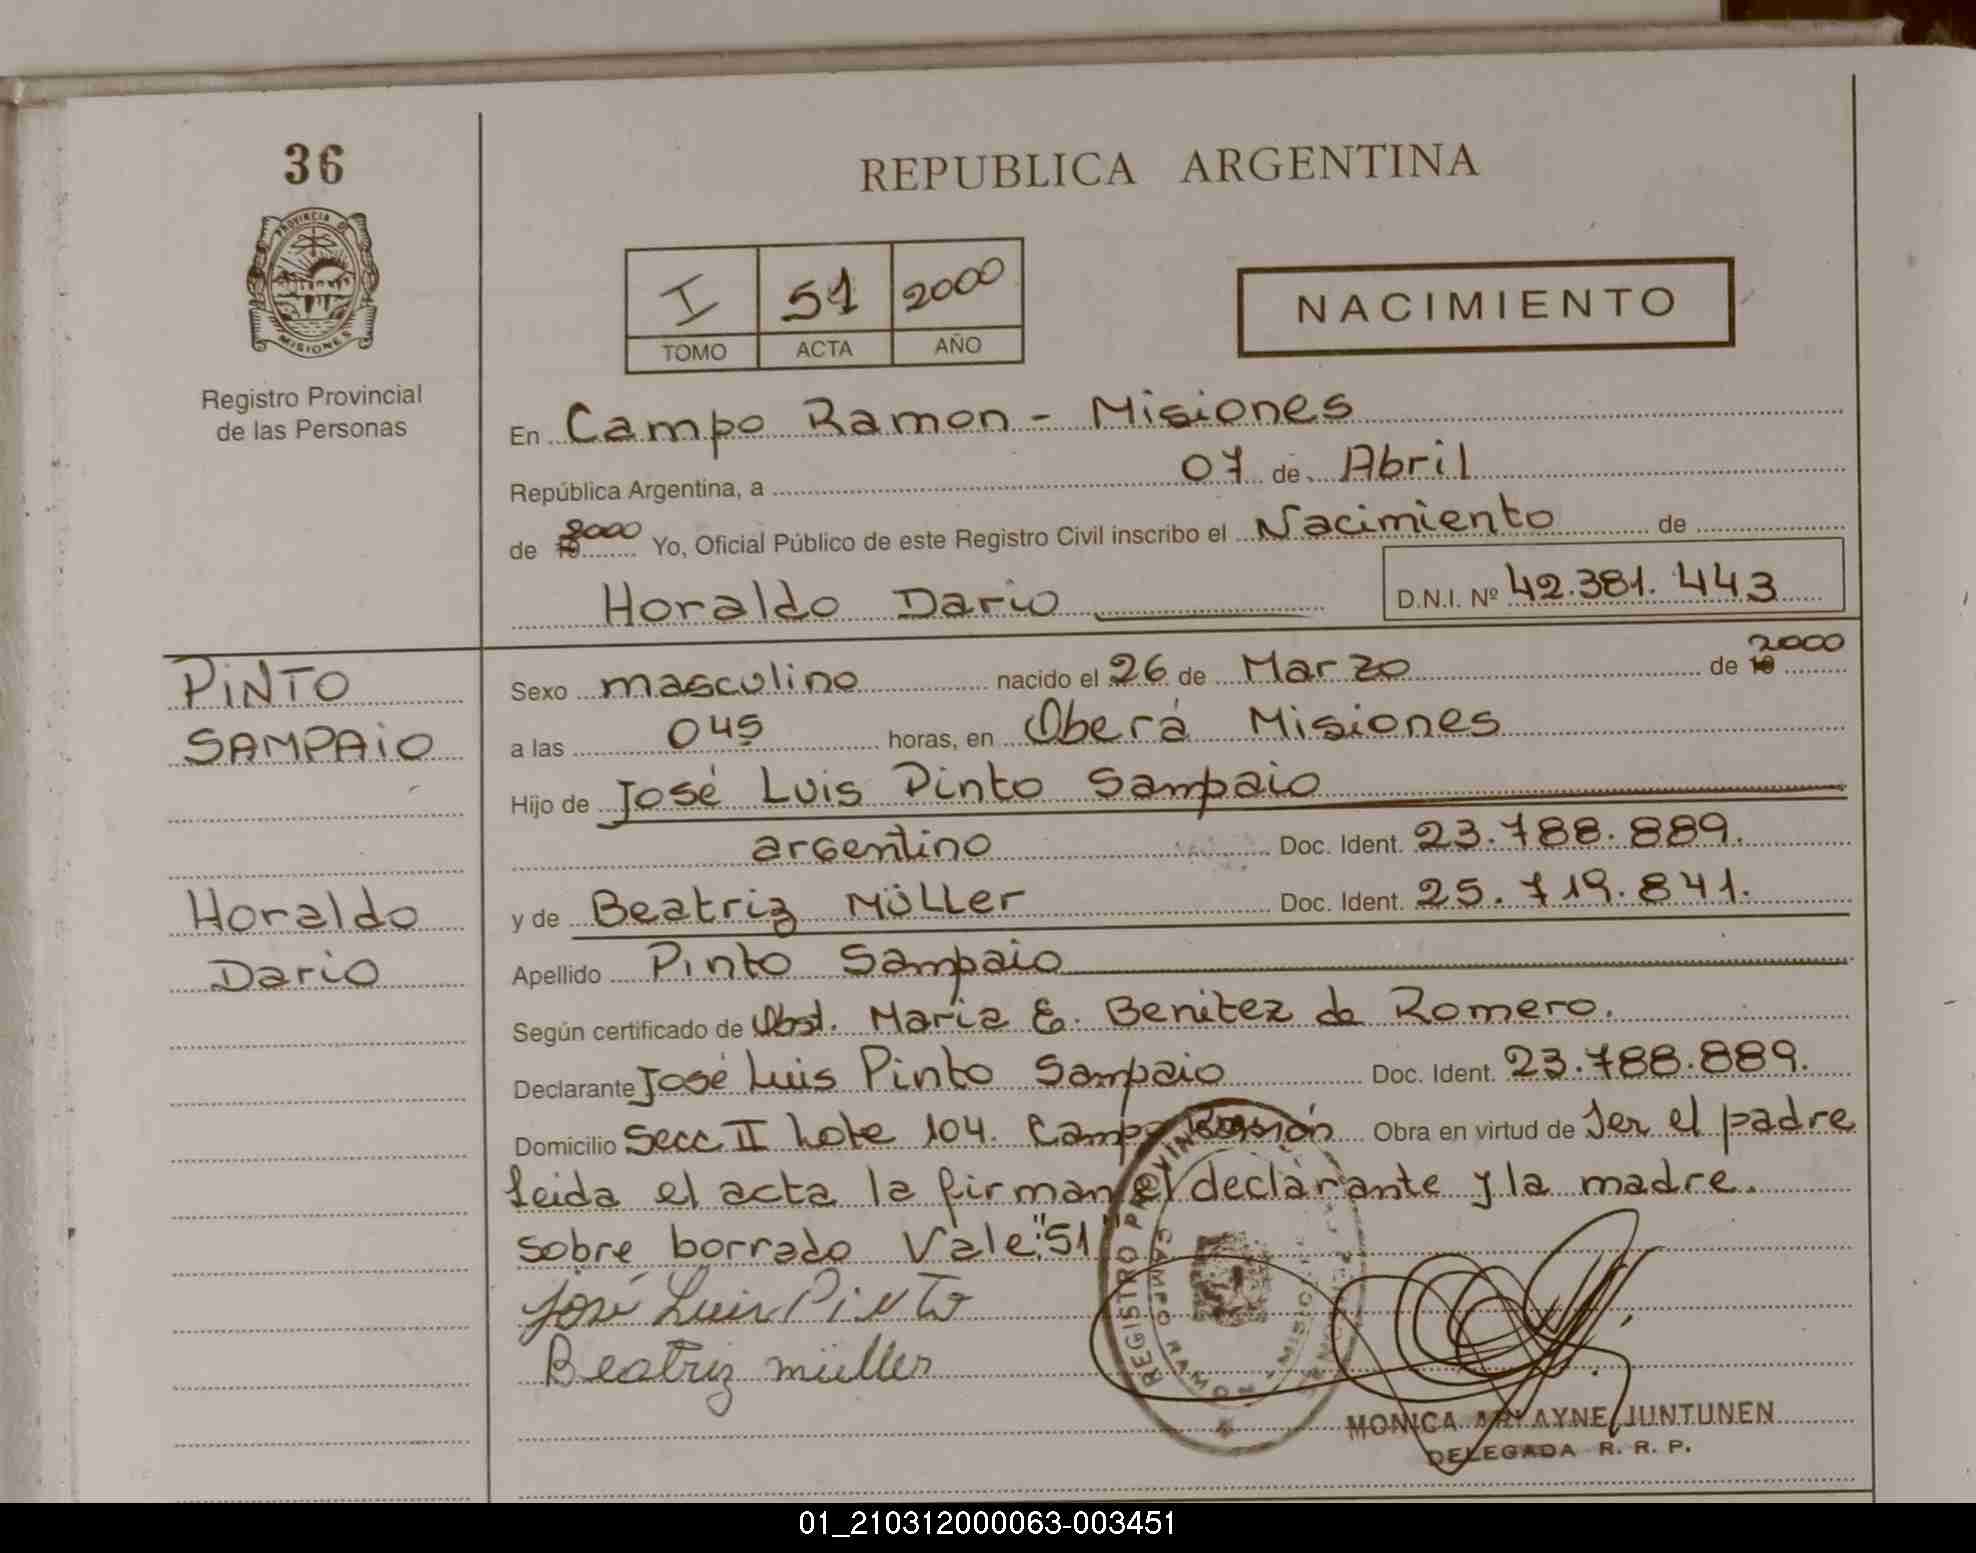 36
PROVINCIA DE
MISIONES
Registro Provincial
de las Personas
REPUBLICA ARGENTINA
I 51 2000
TOMO ACTA AÑO
NACIMIENTO
En Campo Ramon - Misiones
República Argentina, a 07 de Abril
de 2000 Yo, Oficial Público de este Registro Civil inscribo el Nacimiento de
Horaldo Dario D.N.I. Nº 42.381.443
PINTO
SAMPAIO
Horaldo
Dario
Sexo masculino nacido el 26 de Marzo de 2000
a las 045 horas, en Oberá Misiones
Hijo de José Luis Pinto Sampaio
argentino Doc. Ident. 23.788.889.
y de Beatriz Müller Doc. Ident. 25.719.841.
Apellido Pinto Sampaio
Según certificado de Obst. Maria E. Benitez de Romero.
Declarante José Luis Pinto Sampaio Doc. Ident. 23.788.889.
Domicilio Secc II Lote 104. Campo Ramón Obra en virtud de Ser el padre
Leida el acta la firman el declarante y la madre.
sobre borrado Vale:"51"
José Luis Pinto
Beatriz müller
REGISTRO PROVIN
CAMPO RAMON
MONICA ARLAYNE JUNTUNEN
DELEGADA R. R. P.
01_210312000063-003451